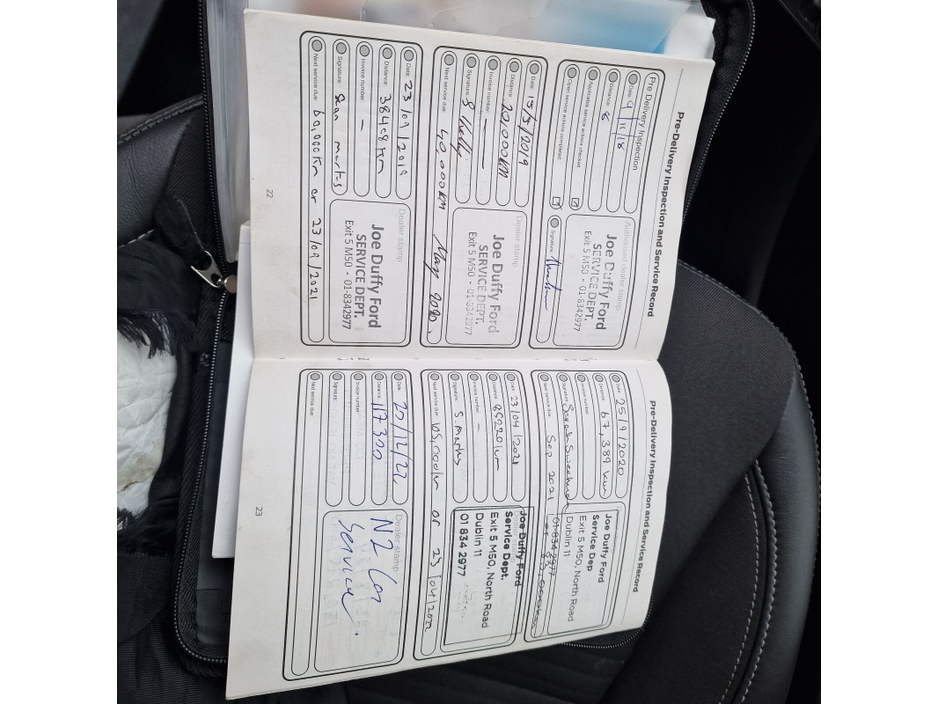 Pre-Delivery Inspection and Service Record
Pre Delivery Inspection
Date: 9/11/18
Distance: 8
Repairable service actions checked
Open service actions completed
Signature:
Authorised dealer stamp
Joe Duffy Ford
SERVICE DEPT.
Exit 5 M50 - 01-8342977
Date: 15/5/2019
Distance: 20,000KM
Invoice number: —
Signature: S Kelly
Next service due: 40,000KM May 2020.
Dealer stamp
Joe Duffy Ford
SERVICE DEPT.
Exit 5 M50 - 01-8342977
Date: 23/09/2019
Distance: 38408 Km
Invoice number: —
Signature: Sean martos
Next service due: 60,000Km or 23/09/2021
Dealer stamp
Joe Duffy Ford
SERVICE DEPT.
Exit 5 M50 - 01-8342977
22
Pre-Delivery Inspection and Service Record
Date: 25/9/2020
Distance: 67,389 km
Invoice number:
Signature: Sarah Sweeney
Next service due: Sep 2021
Joe Duffy Ford
Service Dep
Exit 5 M50, North Road
Dublin 11
01 834 2977
Date: 23/04/2021
Distance: 85220km
Invoice number: —
Signature: S martos
Next service due: 105,000km or 23/04/2022
Joe Duffy Ford
Service Dept.
Exit 5 M50, North Road
Dublin 11
01 834 2977
Date: 22/12/22
Distance: 117300
Invoice number:
Signature:
Next service due:
Dealer stamp
N2 Car
Service
23